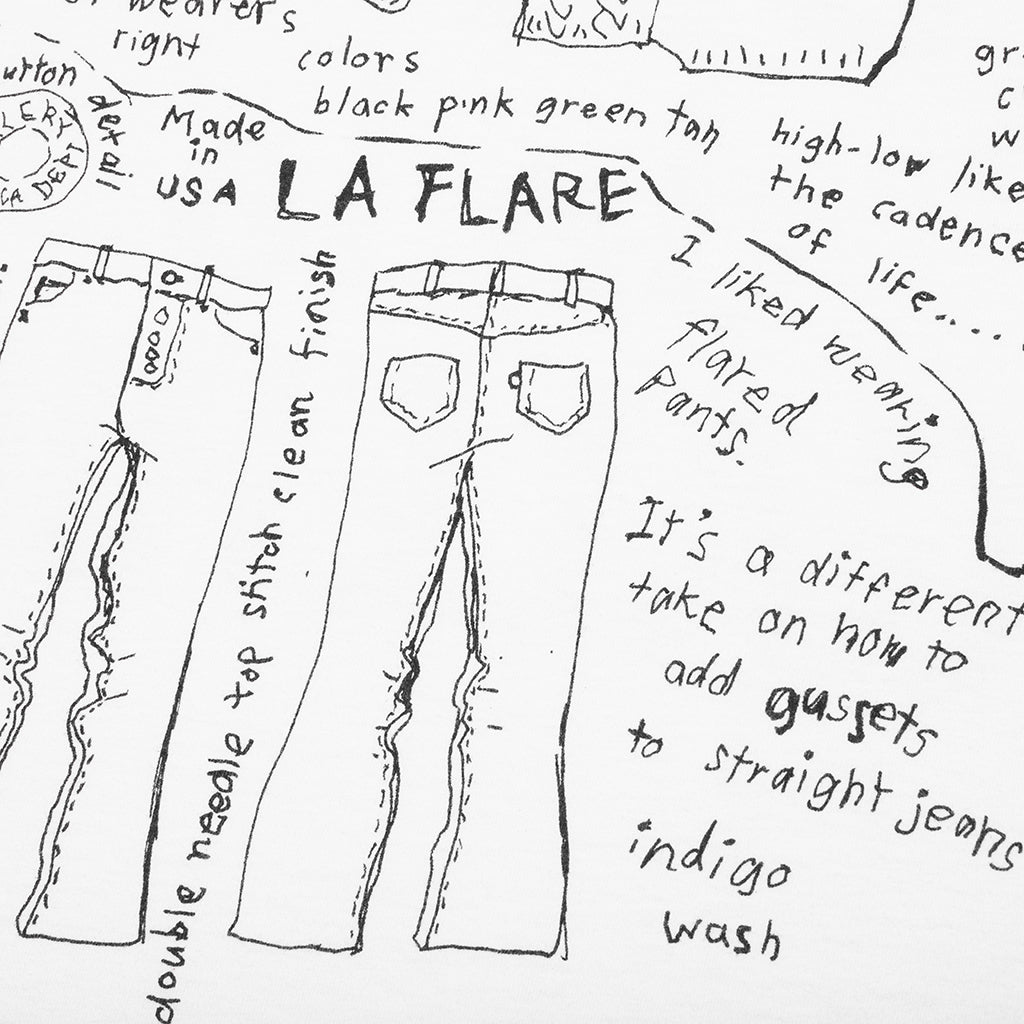 wearers
right
colors
black pink green tan
button
detail
LERY
DEPT
Made
in
USA
LA FLARE
high-low like
the cadence
of life.....
I liked wearing
flared
Pants.
double needle top stitch clean finish
It's a different
take on how to
add gussets
to straight jeans
indigo
wash